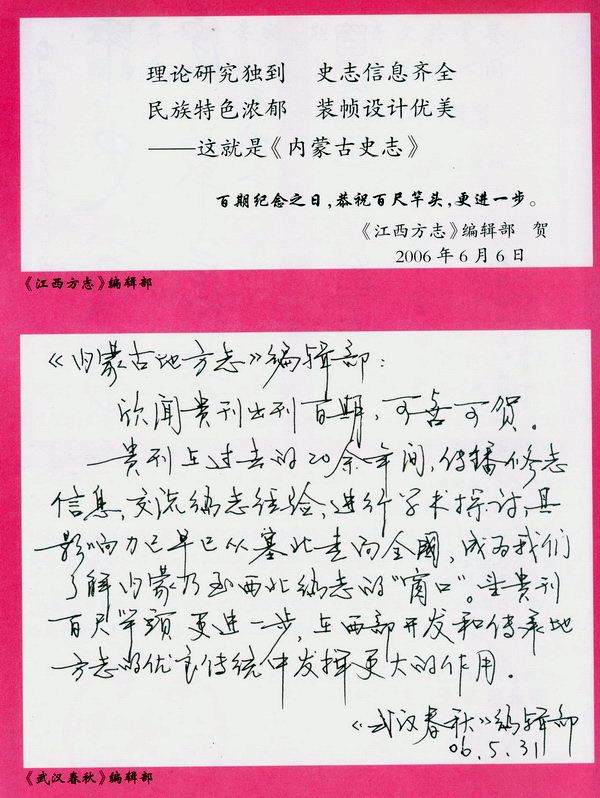 理论研究独到　史志信息齐全
民族特色浓郁　装帧设计优美
——这就是《内蒙古史志》
百期纪念之日,恭祝百尺竿头,更进一步。
《江西方志》编辑部　贺
2006年6月6日
《江西方志》编辑部
《内蒙古地方志》编辑部:
欣闻贵刊出刊百期,可喜可贺。
贵刊在过去的20余年间,传播修志
信息,交流编志经验,进行学术探讨,其
影响力已早已从塞北走向全國,成为我们
了解内蒙乃至西北编志的“窗口”。望贵刊
百尺竿頭更进一步,在西部开发和传承地
方志的优良传统中发挥更大的作用。
《武汉春秋》编辑部
06.5.31
《武汉春秋》编辑部